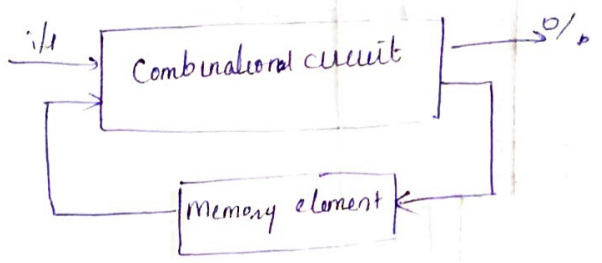 i/p
o/p
Combinational circuit
Memory element